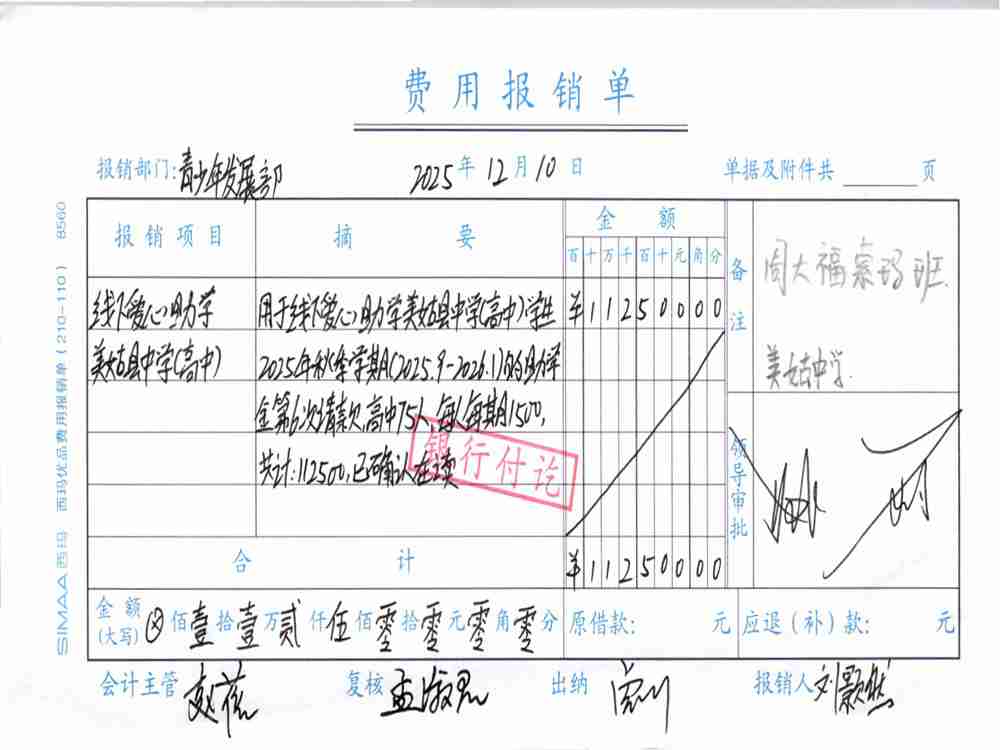 费用报销单
报销部门:青少年发展部 2025年12月10日 单据及附件共 页
报销项目 摘要 金额 备注
百十万千百十元角分
线下爱心助学 用于线下爱心助学美姑县中学(高中)学生 ¥11250000
美姑县中学(高中) 2025年秋季学期(2025.9-2026.1)的助学
金第6次请款,高中75人,每人每期1500,
共计:112500,已确认在读
银行付讫
周大福索玛班.
美姑中学.
领导审批
合计 ¥11250000
金额(大写) ⊗佰壹拾壹万贰仟伍佰零拾零元零角零分 原借款: 元 应退(补)款: 元
会计主管 复核 孟淑君 出纳 报销人 刘颢然
SIMAA 西玛 西玛优品费用报销单(210-110) 8560